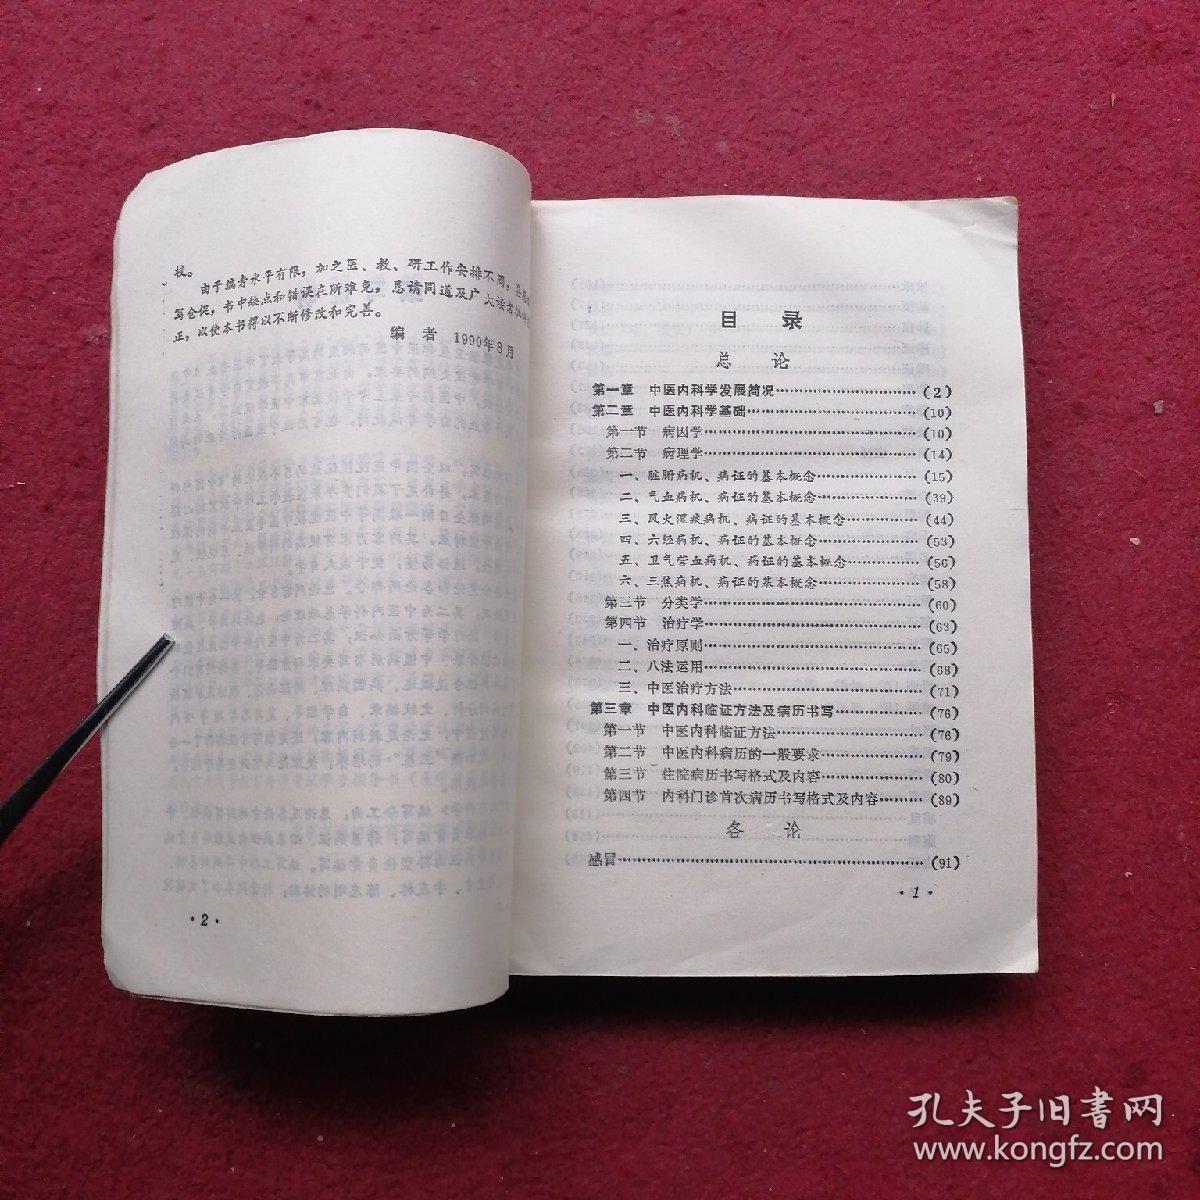 校。
由于编者水平有限，加之医、教、研工作安排不同，
写仓促，书中缺点和错误在所难免，恳请同道及广大读者
正，以使本书得以不断修改和完善。
编 者 1990年8月
·2·
目 录
总 论
第一章 中医内科学发展简况……………………(2)
第二章 中医内科学基础…………………………(10)
第一节 病因学……………………………………(10)
第二节 病理学……………………………………(14)
一、脏腑病机、病证的基本概念………………(15)
二、气血病机、病证的基本概念………………(39)
三、风火湿痰病机、病证的基本概念…………(44)
四、六经病机、病证的基本概念………………(53)
五、卫气营血病机、病证的基本概念…………(56)
六、三焦病机、病证的基本概念………………(58)
第三节 分类学……………………………………(60)
第四节 治疗学……………………………………(63)
一、治疗原则……………………………………(65)
二、八法运用……………………………………(68)
三、中医治疗方法………………………………(71)
第三章 中医内科临证方法及病历书写…………(76)
第一节 中医内科临证方法………………………(76)
第二节 中医内科病历的一般要求………………(79)
第三节 住院病历书写格式及内容………………(80)
第四节 内科门诊首次病历书写格式及内容……(89)
各 论
感冒………………………………………………(91)
·1·
孔夫子旧書网
www.kongfz.com